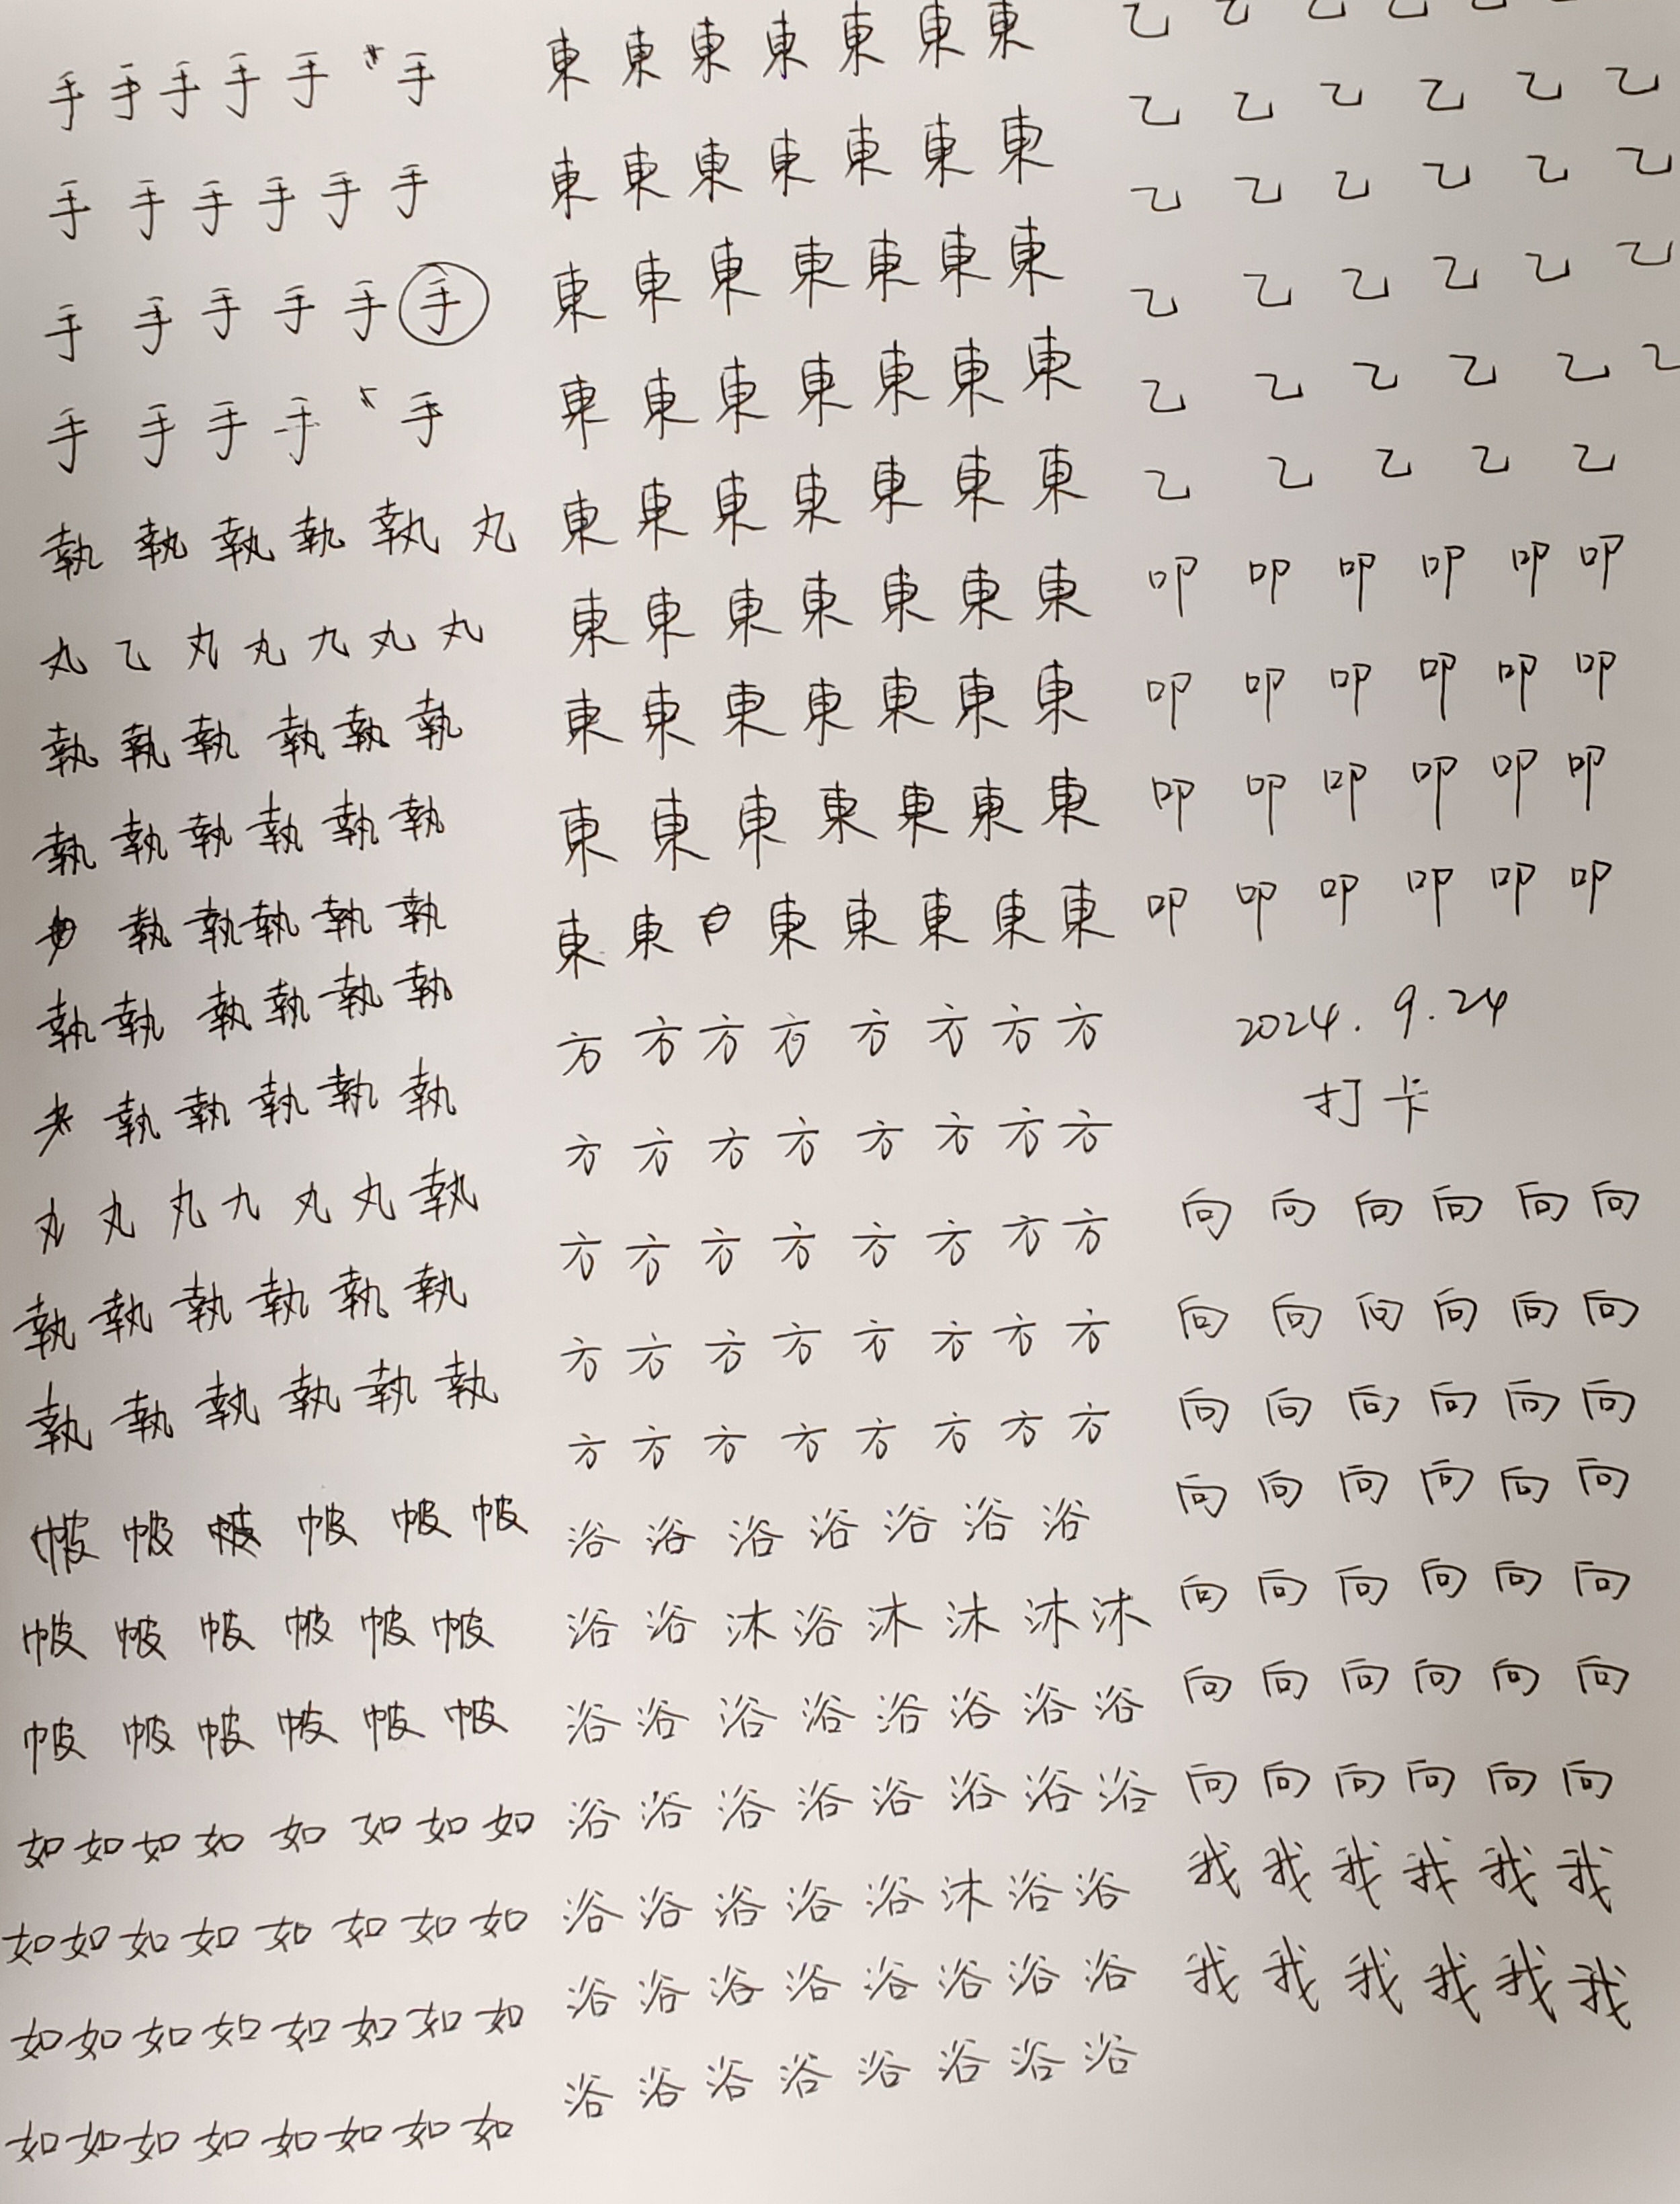 手手手手手手
手手手手手手
手手手手手手
手手手手手
執執執執執丸
丸乙丸丸九丸丸
執執執執執執
執執執執執執
執執執執執
執執執執執執
執執執執執
丸丸丸九丸丸執
執執執執執執
執執執執執執
帔帔帔帔帔
帔帔帔帔帔帔
帔帔帔帔帔帔
如如如如如如如如
如如如如如如如如
如如如如如如如如
如如如如如如如如
東東東東東東東
東東東東東東東
東東東東東東東
東東東東東東東
東東東東東東東
東東東東東東東
東東東東東東東
東東東東東東東
東東東東東東東
方方方方方方方方
方方方方方方方方
方方方方方方方方
方方方方方方方方
方方方方方方方方
浴浴浴浴浴浴浴
浴浴沐浴沐沐沐沐
浴浴浴浴浴浴浴浴
浴浴浴浴浴浴浴浴
浴浴浴浴浴沐浴浴
浴浴浴浴浴浴浴浴
浴浴浴浴浴浴浴浴
乙乙乙乙乙乙
乙乙乙乙乙乙
乙乙乙乙乙乙
乙乙乙乙乙乙
乙乙乙乙乙乙
乙乙乙乙乙
叩叩叩叩叩叩
叩叩叩叩叩叩
叩叩叩叩叩叩
叩叩叩叩叩叩
2024.9.24
打卡
向向向向向向
向向向向向向
向向向向向向
向向向向向向
向向向向向向
向向向向向向
向向向向向向
我我我我我我
我我我我我我